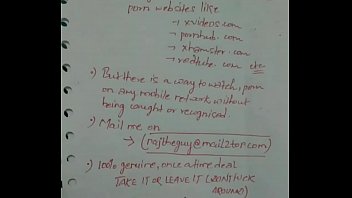 porn websites like
→ xvideos.com
→ pornhub.com
→ xhamster.com
→ redtube.com etc
•) But there is a way to watch, porn
on any mobile network without
being caught or recognised.
•) Mail me on
→ (rajtheguy@mail2tor.com)
•) 100% genuine, once a time deal
TAKE IT OR LEAVE IT (DON'T HICK
AROUND)